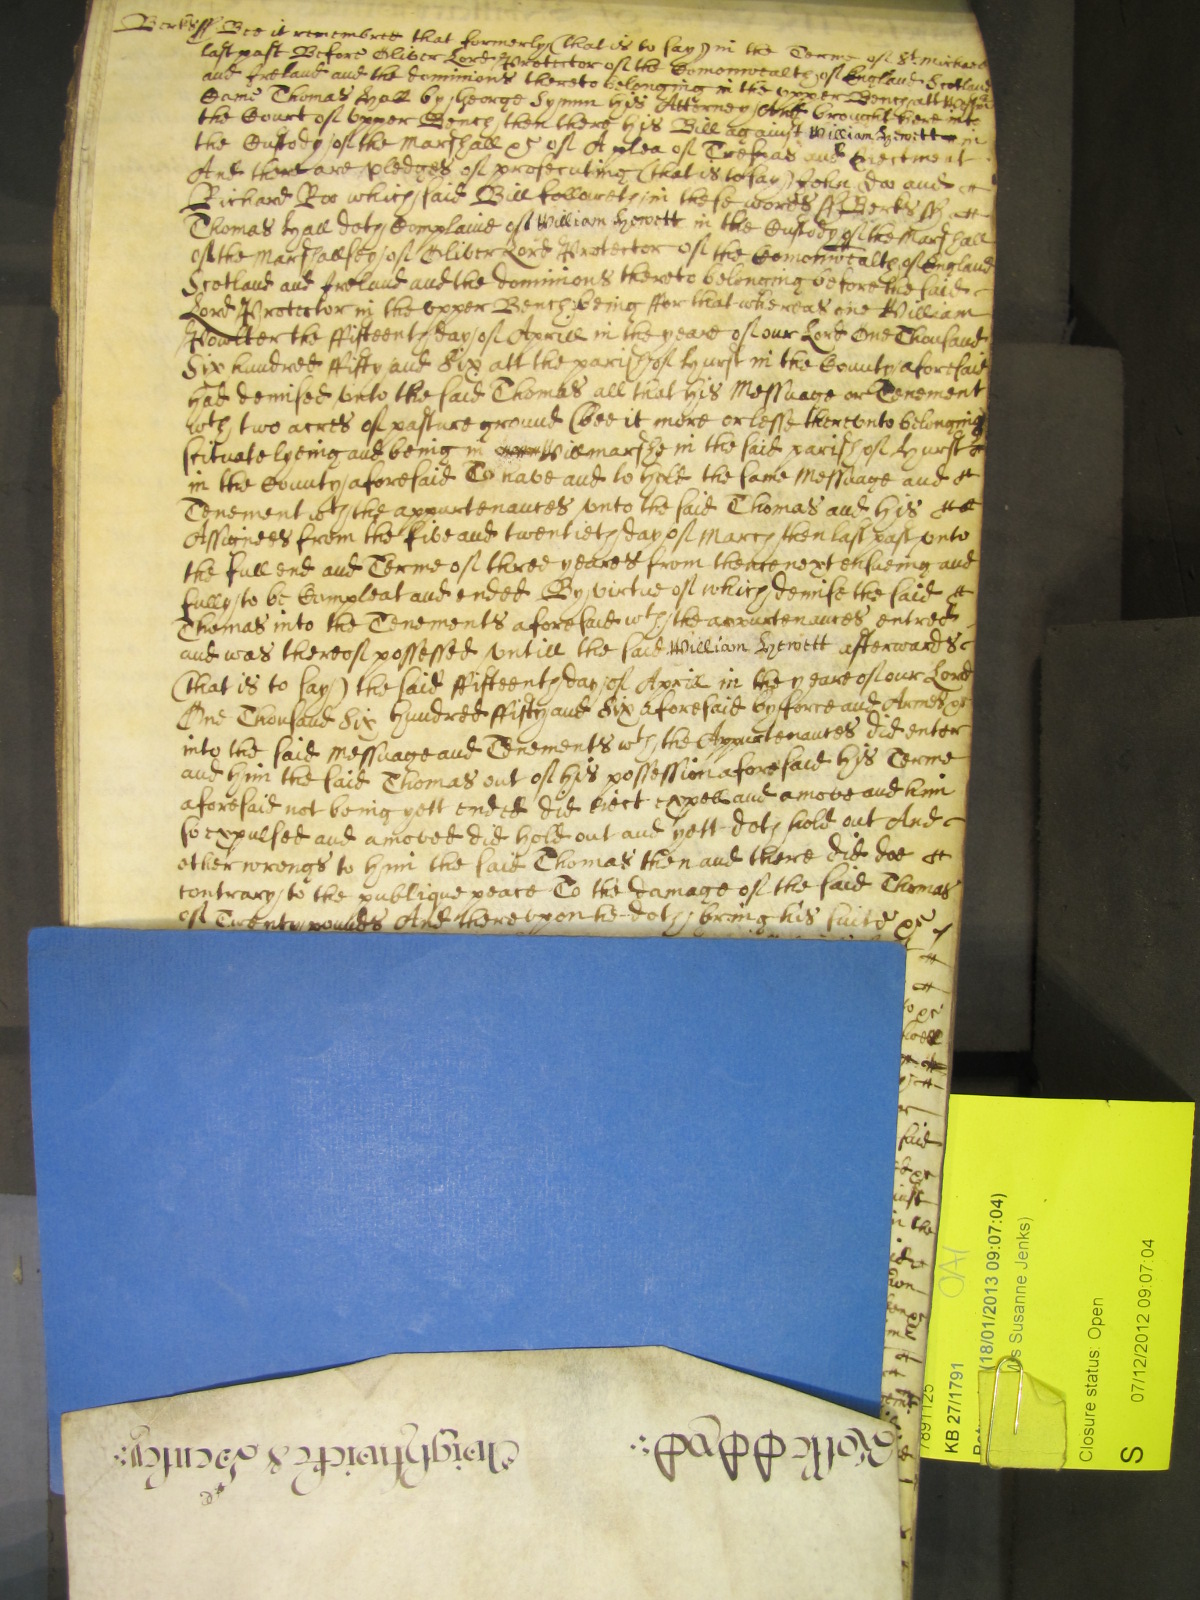 Berks ss Bee it remembred that formerly (that is to say) in the Terme of St. Michael
last past Before Oliver Lord Protector of the Comonwealth of England Scotland
and Ireland and the dominions thereto belonging in the upper Bench att Westmr
Came Thomas Hall by George Symm his Attorney And brought here into
the Court of upper Bench then there his Bill against William Hewett in
the Custody of the Marshall &c of A plea of Trespas and Eiectment
And there are pledges of prosecuting (that is to say) John Doe and
Richard Roe which said Bill followeth in these words ss Berks ss
Thomas Hall doth Complaine of William Hewett in the Custody of the Marshall
of the Marshallsey of Oliver Lord Protector of the Comonwealth of England
Scotland and Ireland and the dominions thereto belonging before the said
Lord Protector in the upper Bench being ffor that whereas one William
Powlter the ffifteenth day of Aprill in the yeare of our Lord One Thousand
Six hundred ffifty and Six att the parish of Hurst in the County aforesaid
had demised unto the said Thomas all that his Messuage or Tenement
wth two acres of pasture ground (bee it more or lesse thereunto belonging
scituate lyeing and being in Willmarshe in the said parish of Hurst
in the County aforesaid To have and to hold the same Messuage and
Tenement wth the appurtenances unto the said Thomas and his
Assignees from the five and twentieth day of March then last past unto
the full end and Terme of three yeares from thence next ensueing and
fully to be Compleat and ended By virtue of which demise the said
Thomas into the Tenements aforesaid wth the appurtenances entred
and was thereof possessed untill the said William Hewett afterwards
(that is to say) the said ffifteenth day of Aprill in the yeare of our Lord
One Thousand Six hundred ffifty and Six aforesaid by fforce and Armes &c
into the said Messuage and Tenements wth the Appurtenances did enter
and him the said Thomas out of his possession aforesaid his Terme
aforesaid not being yett ended did eiect expell and amove and him
so expulsed and amoved did hold out and yett doth hold out And
other wrongs to him the said Thomas then and there did doe
contrary to the publique peace To the damage of the said Thomas
of Twenty pounds And thereupon he doth bring his suite &c
said
in the
7891125
KB 27/1791
(18/01/2013 09:07:04)
Ms Susanne Jenks)
Closure status: Open
S
07/12/2012 09:07:04